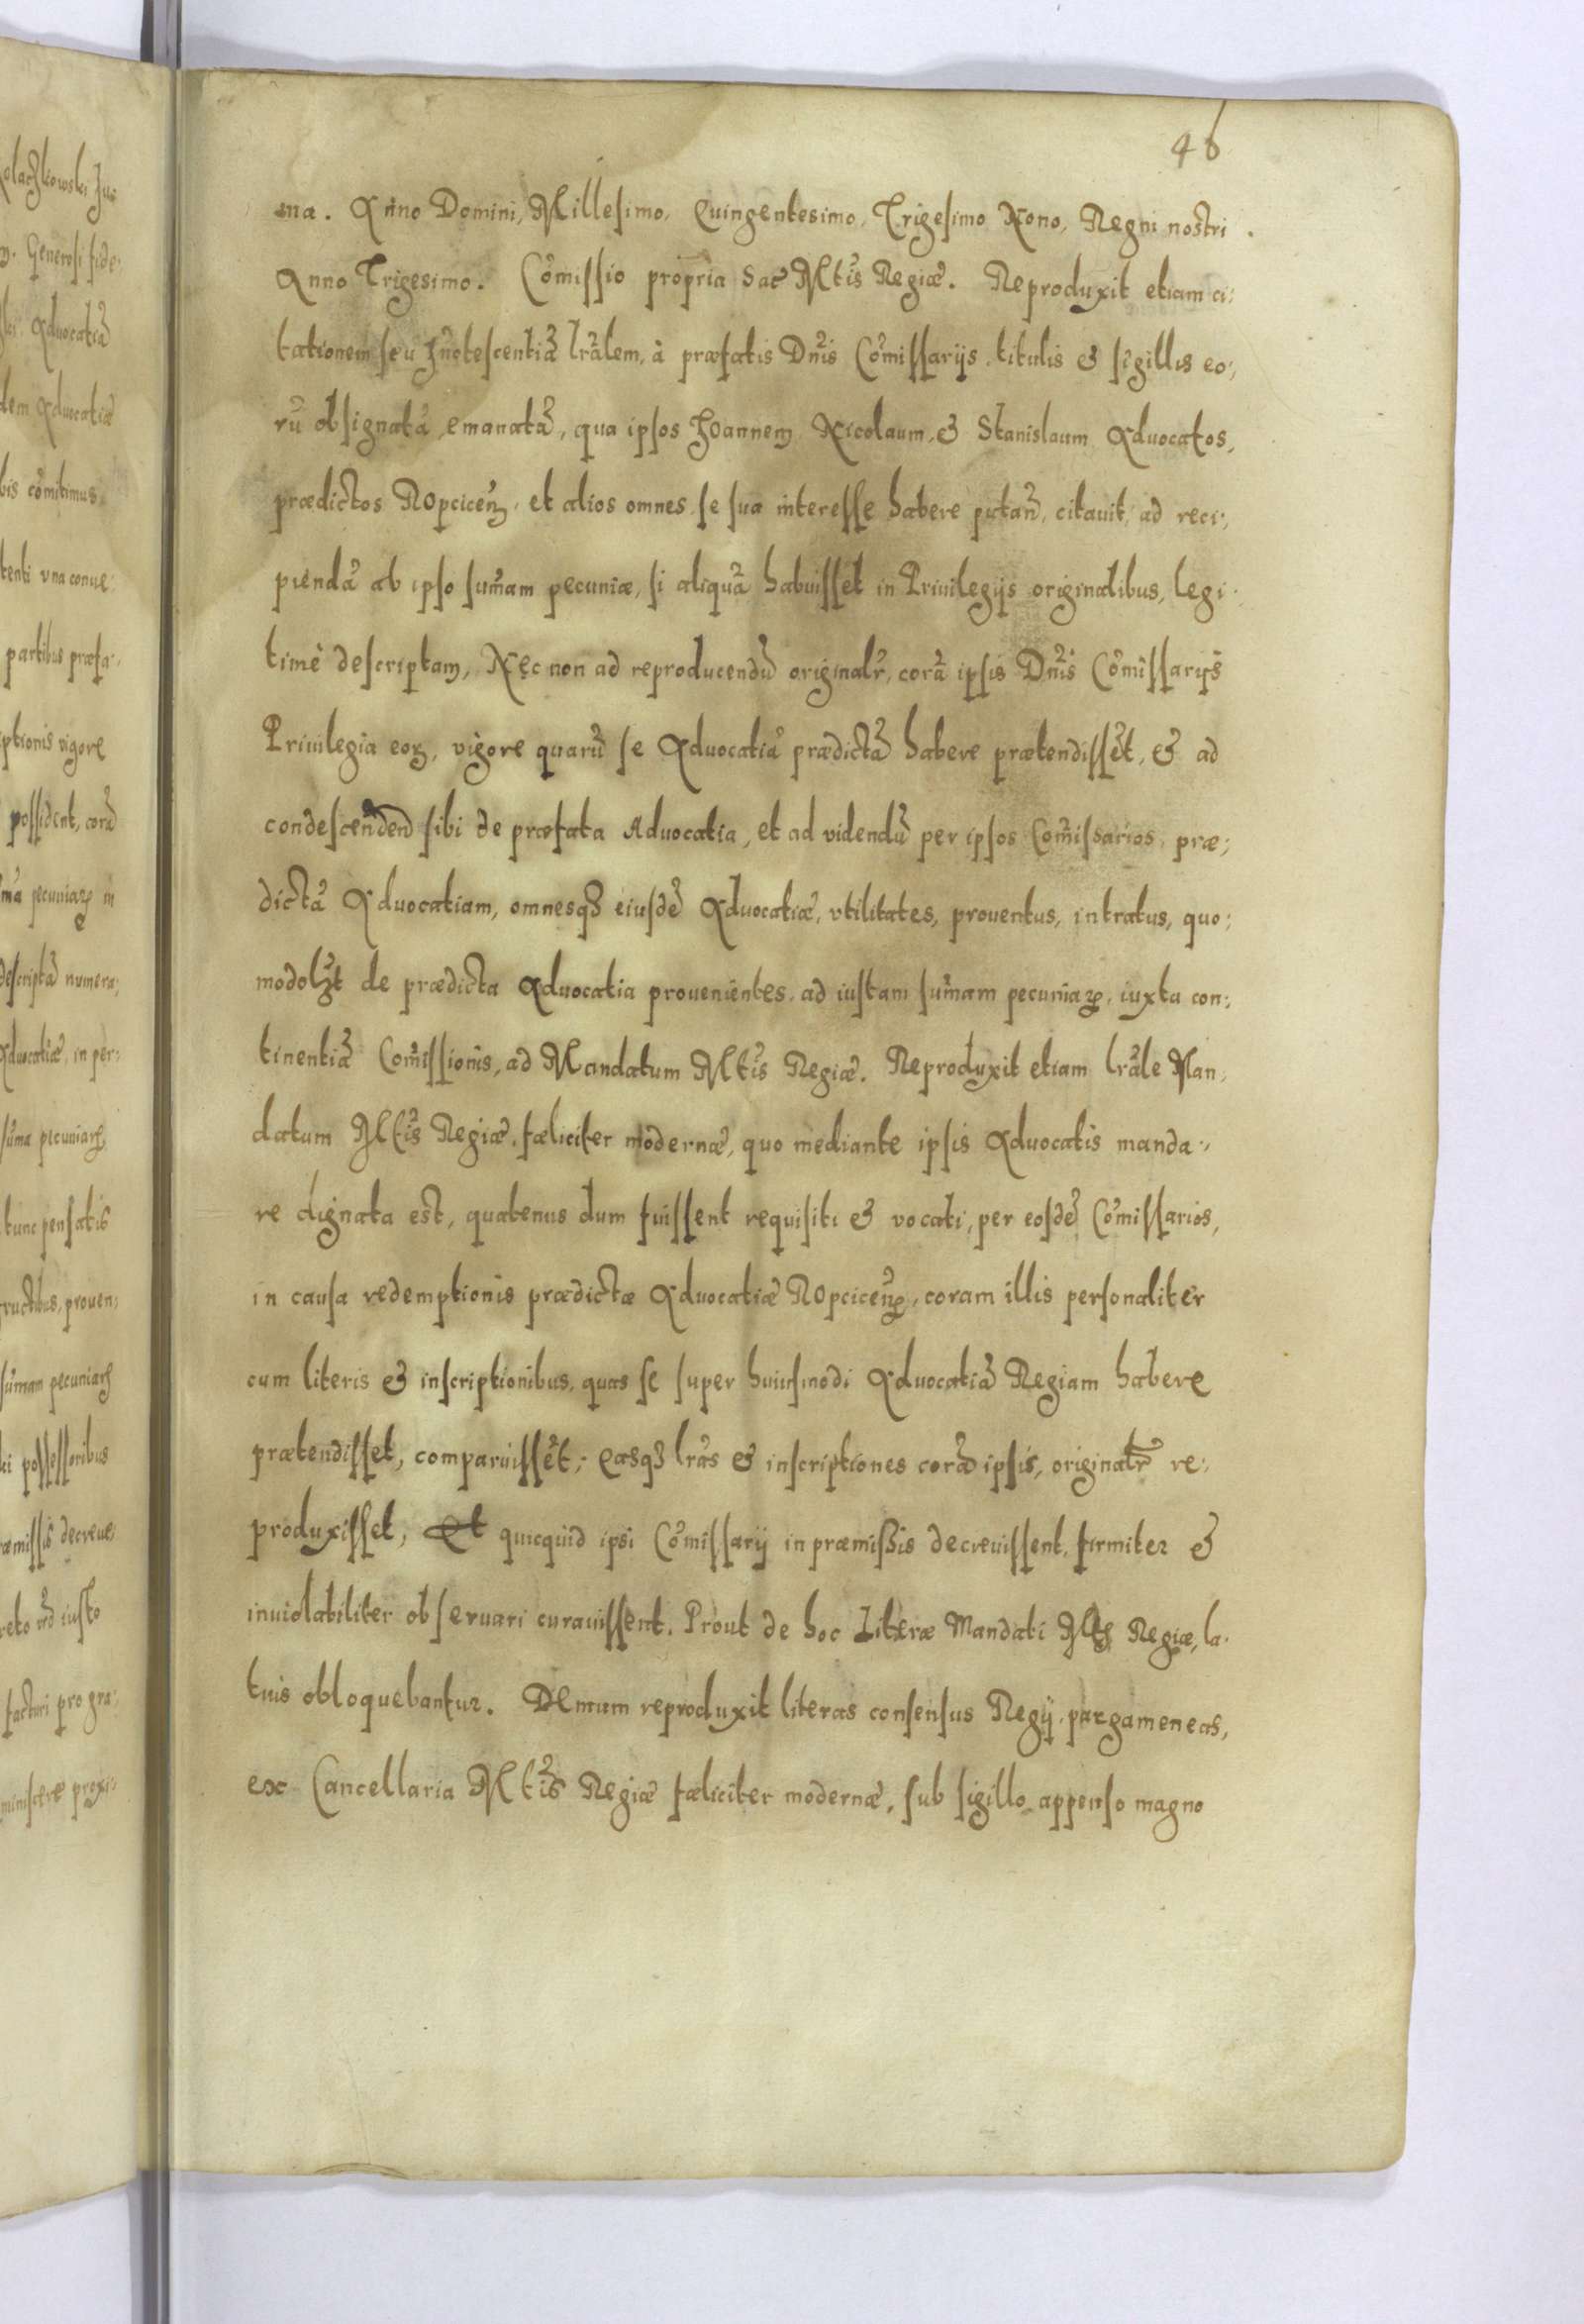 46
ma. Anno Domini, Millesimo, Quingentesimo, Trigesimo Nono, Regni nostri.
Anno Trigesimo. Cõmissio propria Sac Mtis Regiæ. Reproduxit etiam ci:
tationem seu Jnotescentiã lrãlem, à præfatis Dnis Cõmissarijs, titulis & sigillis eo:
rũ obsignatã, emanatã, qua ipsos Joannem, Nicolaum, & Stanislaum Aduocatos,
prædictos Ropcicen, et alios omnes se sua interesse habere putan, citauit, ad reci:
piendã ab ipso sumam pecuniæ, si aliquã habuisset in Priuilegijs originalibus, legi:
timè descriptam, Nec non ad reproducendũ originalr, corã ipsis Dnis Cõmissarijs
Priuilegia eoꝝ, vigore quarũ se Aduocatiã prædictã habere prætendissẽt, & ad
condescendend sibi de præfata Aduocatia, et ad videndũ per ipsos Comissarios, præ:
dictã Aduocatiam, omnesqȝ eiusdẽ Aduocatiæ, vtilitates, prouentus, intratus, quo:
modolȝt de prædicta Aduocatia prouenientes, ad iustam sumam pecuniaꝝ, iuxta con:
tinentiã Comissionis, ad Mandatum Mtis Regiæ. Reproduxit etiam lrãle Man:
datum Mtis Regiæ, fæliciter modernæ, quo mediante ipsis Aduocatis manda:
re dignata est, quatenus dum fuissent requisiti & vocati, per eosdẽ Cõmissarios,
in causa redemptionis prædictæ Aduocatiæ Ropcicen, coram illis personaliter
cum literis & inscriptionibus, quas se super huiusmodi Aduocatiã Regiam habere
prætendisset, comparuissẽt; easqȝ lrãs & inscriptiones corã ipsis, originalr re:
produxisset, Et quicquid ipsi Cõmissarij in præmißis decreuissent, firmiter &
inuiolabiliter obseruari curauissent. Prout de hoc Literæ Mandati Mtis Regiæ, la:
tius obloquebantur. Demum reproduxit literas consensus Regij, pargameneas,
ex Cancellaria Mtis Regiæ fæliciter modernæ, sub sigillo appenso magno